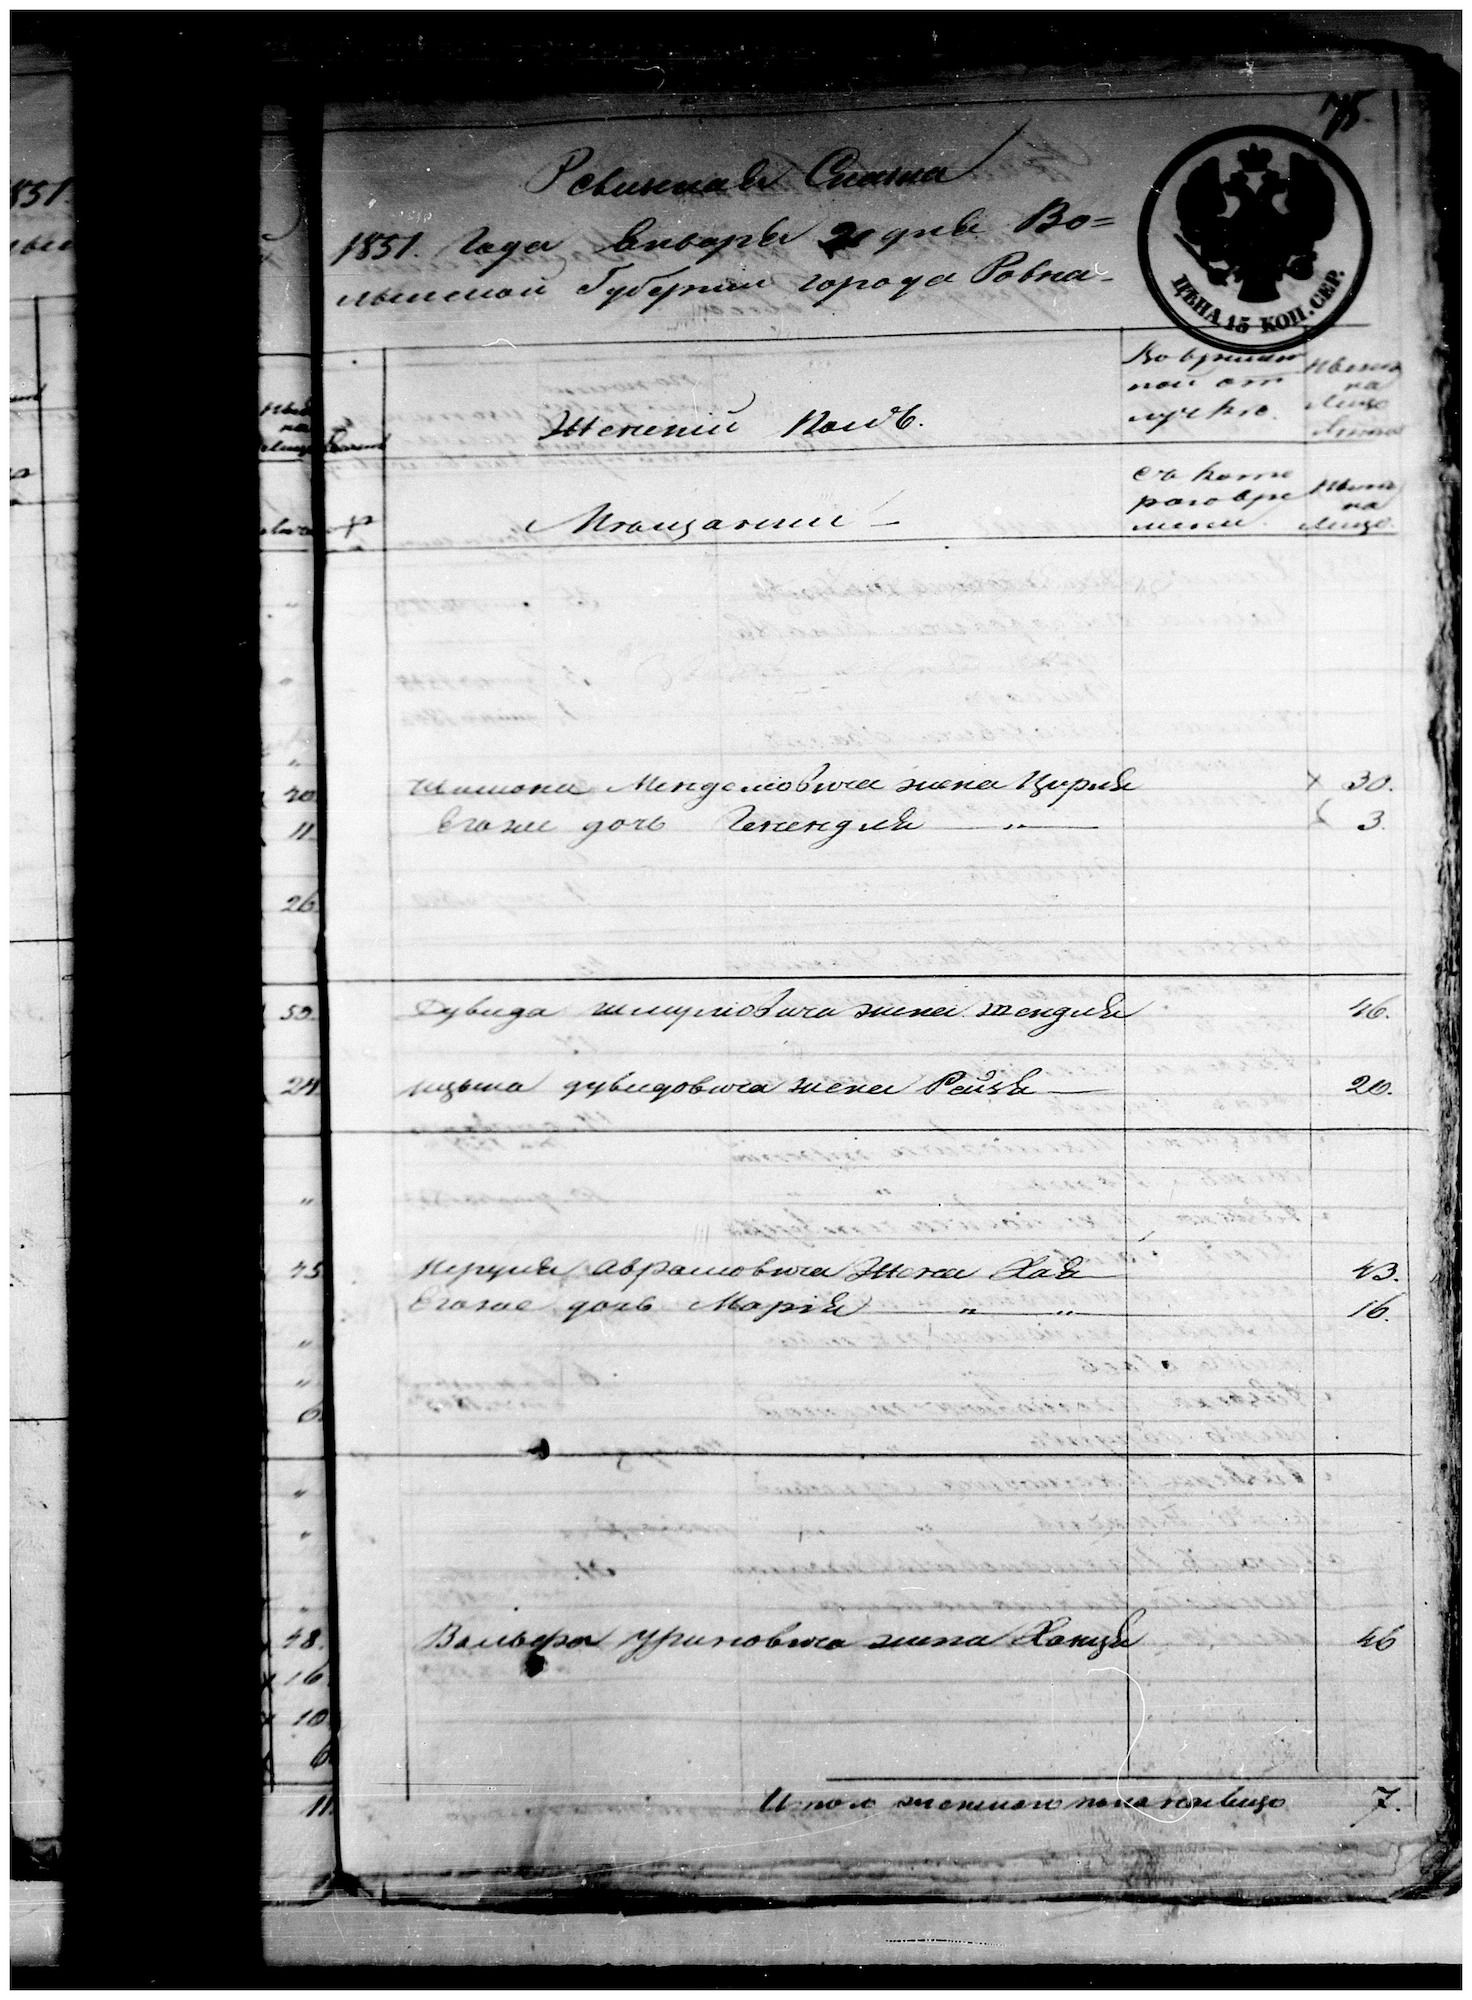 75.
Ревизская Сказка
1851. Года Января 20 дня Во=
лынской Губернии города Ровна
ЦѢНА 15 КОП. СЕР.
Женский Полъ.
Во времен
ной от
лучке.
Ныне
на
Лице
Мещании
Съ кото
раго вре
мени.
Ныне
на
Лице.
Шимона Менделiовича жена Цирля 30.
Егоже дочь Генендля — „ — 3.
Дувида Шмулiовича жена Шендля 46.
Ицька Дувидовича жена Рейзя 20.
Авромовича Жена Хая 43.
Егоже дочь Марiя „ „ 16.
Вольфа Уриновича жена Ханця 46
Итого женскаго пола на лицо 7.
851.
20
11
26
59
24
45
6
48
16
10
6
11